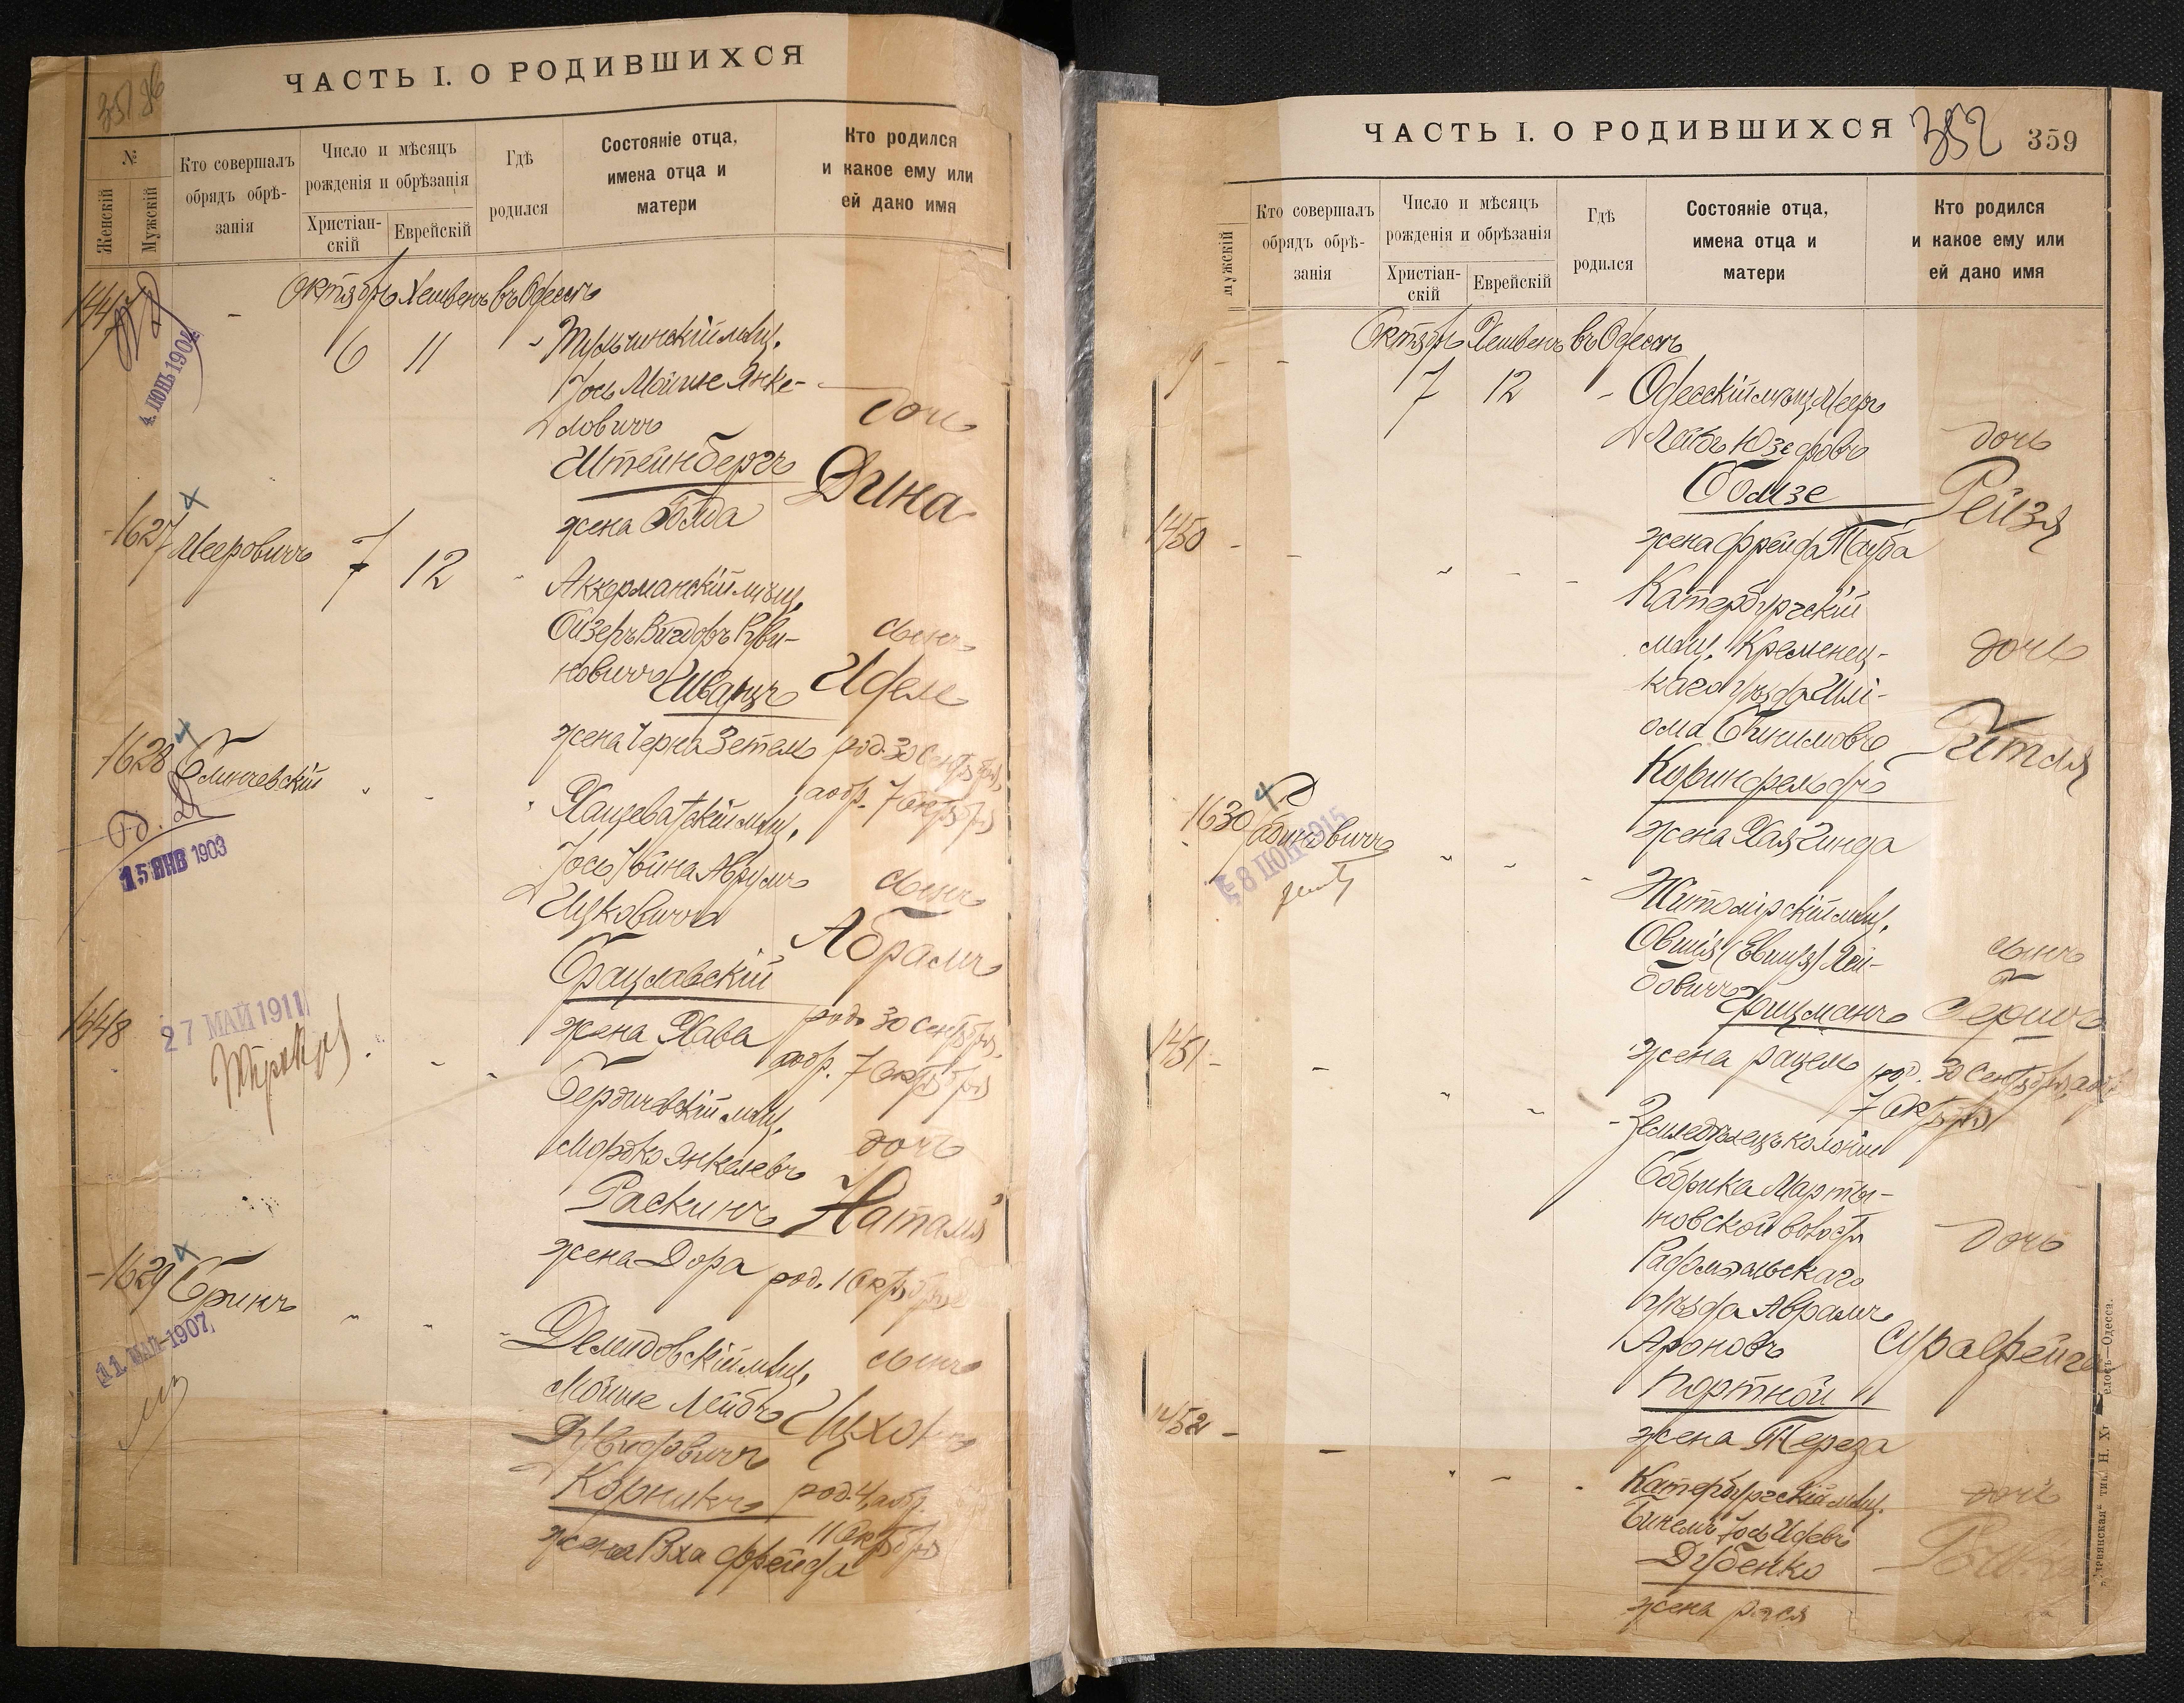 ЧАСТЬ I. О РОДИВШИХСЯ
№
Женскій
Мужскій
Кто совершалъ обрядъ обрѣ-
занія
Число и мѣсяцъ
рожденія и обрѣзанія
Христіан-
скій
Еврейскій
Гдѣ
родился
Состояніе отца,
имена отца и
матери
Кто родился
и какое ему или
ей дано имя
Октябрь Хешвенъ въ Одессѣ
4 ІЮНЬ 1904
6 11
Тульчинскій мѣщ.
Іось Мойше Янке-
левичъ
Штейнбергъ
жена Голда
дочь
Дина
1627 Мееровичъ 7 12
Аккерманскій мѣщ.
Ойзеръ Вигдоръ Руви-
новичъ Шварцъ
жена Черна Зетель
сынъ
Идель
род. 30 Сентября,
а обр. 7 Октября
1628 Глинчевскій
15 ЯНВ 1903
Хащеватскій мѣщ.
Іось Іойна Аврумъ
Ицковичъ
Брацлавскій
жена Хава
сынъ
Абрамъ
род. 30 Сентября,
а обр. 7 Октября
1448
27 МАЙ 1911
Бердичевскій мѣщ.
Мордко Янкелевъ
Раскинъ
жена Дора
дочь
Наталія
род. 1 Октября
1629 Гринъ
11 МАЙ 1907
Демидовскій мѣщ.
Мойше Лейбъ
Дувидовичъ
Корникъ
жена Рухля Фрейда
сынъ
Ицхокъ
род. 4, а обр.
11 Октября
ЧАСТЬ I. О РОДИВШИХСЯ
352 359
Мужскій
Кто совершалъ
обрядъ обрѣ-
занія
Число и мѣсяцъ
рожденія и обрѣзанія
Христіан-
скій
Еврейскій
Гдѣ
родился
Состояніе отца,
имена отца и
матери
Кто родился
и какое ему или
ей дано имя
Октябрь Хешвенъ въ Одессѣ
7 12
Одесскій мѣщ. Мееръ
Лейбъ Юзефовъ
Бомзе
жена Фрейда Тауба
дочь
Рейзя
1450
Катербургскій
мѣщ. Кременец-
каго уѣзда Шлі-
ома Бинимовъ
Коринфельдъ
жена Хая Гинда
дочь
Гитля
1630 Рабиновичъ
Житомірскій мѣщ.
Овшія (Евшія) Лей-
бовичъ Грицманъ
жена Рацель
сынъ
Гершъ
род. 30 Сентября, а обр.
7 Октября
1451
Земледѣлецъ колоніи
Бобрика Марты-
новской волости
Радомысльскаго
уѣзда Аврамъ
Ароновъ
Портной
жена Тереза
дочь
Сура Фрейга
1452
Катербургскій мѣщ.
Бинемъ Іось Идевъ
Дубенко
жена Рася
дочь
„Славянская“ тип. Н. Х
елосъ—Одесса.